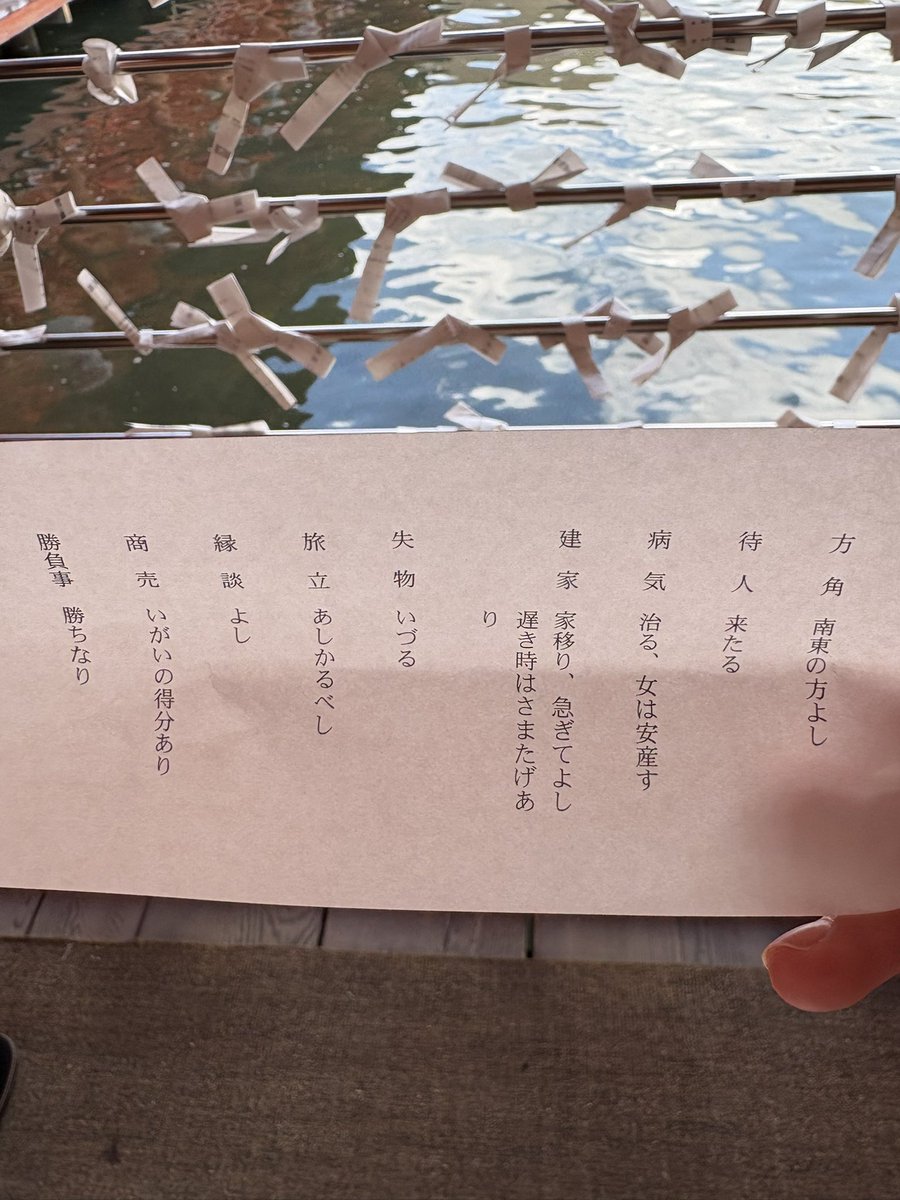 方角 南東の方よし
待人 来たる
病気 治る、女は安産す
建家 家移り、急ぎてよし
遅き時はさまたげあ
り
失物 いづる
旅立 あしかるべし
縁談 よし
商売 いがいの得分あり
勝負事 勝ちなり